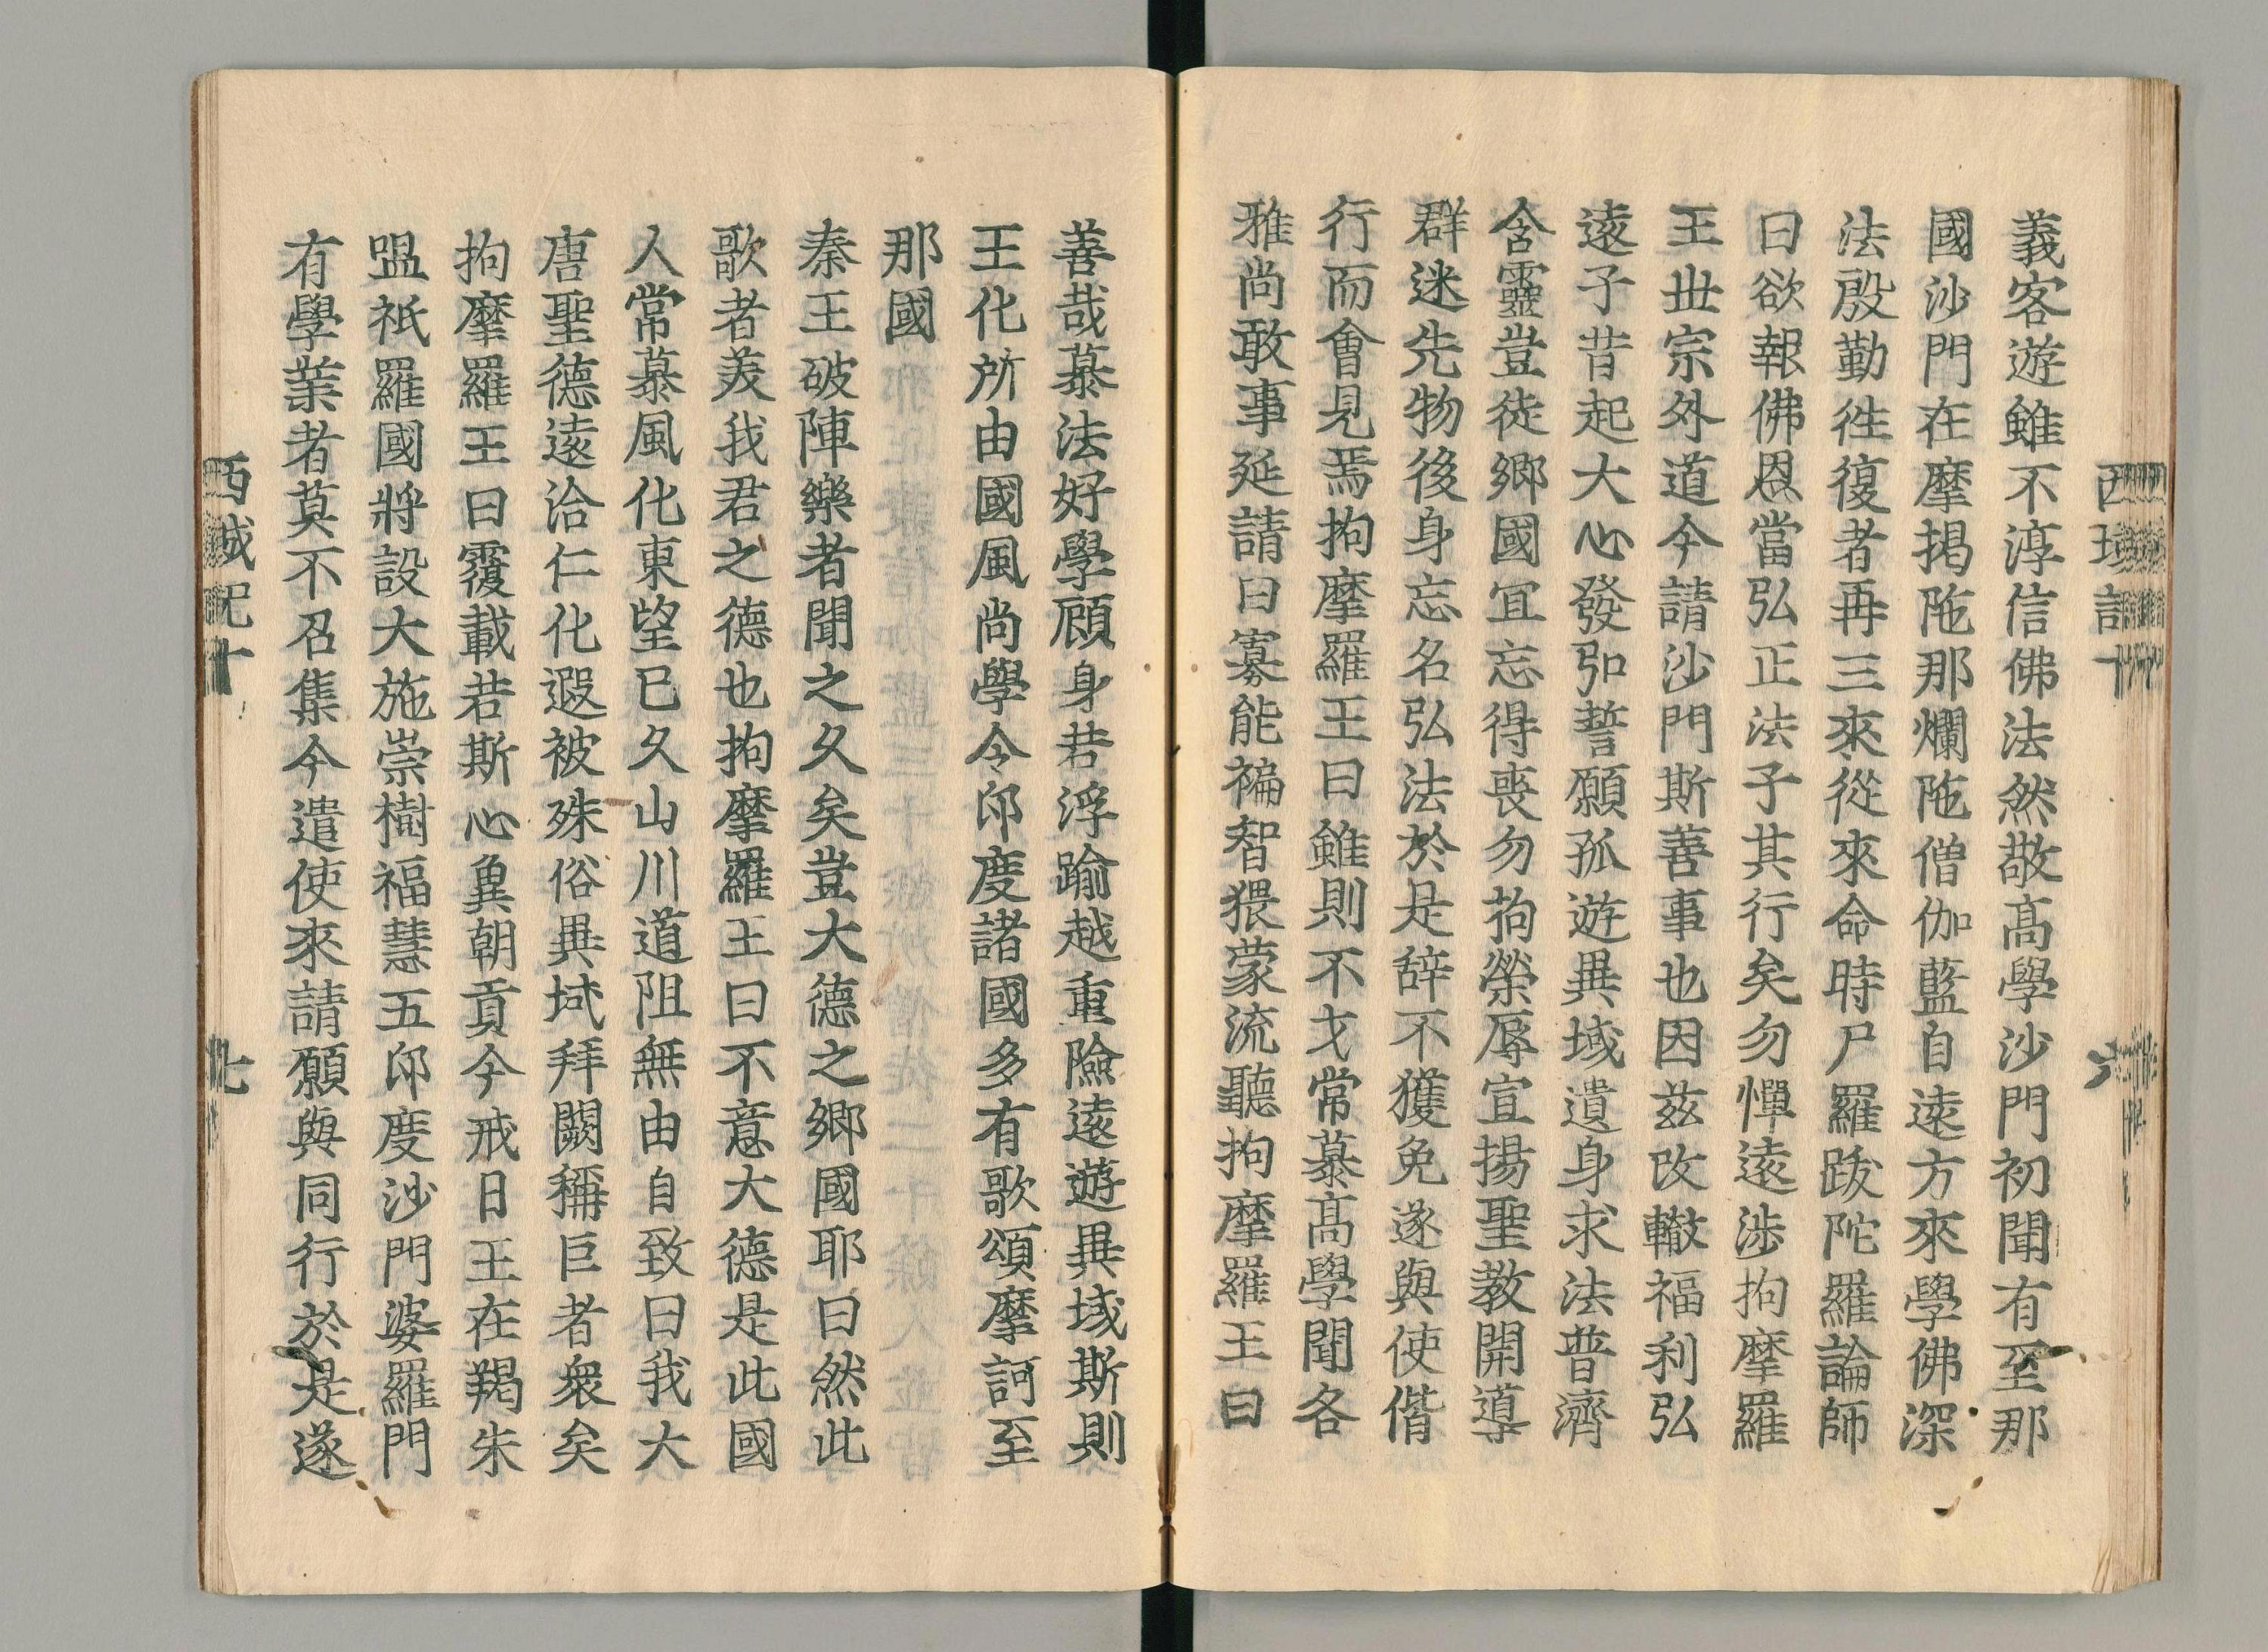 西域記十
六
義客遊雖不淳信佛法然敬髙學沙門初聞有至那
國沙門在摩揭陁那爛陁僧伽藍自遠方來學佛深
法殷勤徃復者再三來從來命時尸羅跋陀羅論師
曰欲報佛恩當弘正法子其行矣勿憚遠涉拘摩羅
王丗宗外道今請沙門斯善事也因茲改轍福利弘
遠子昔起大心發弘誓願孤遊異域遺身求法普濟
含靈豈徒鄉國宜忘得喪勿拘榮辱宣揚聖教開導
群迷先物後身忘名弘法於是辞不獲免遂與使偕
行而會見焉拘摩羅王曰雖則不才常慕髙學聞各
雅尚敢事延請曰寡能褊智猥蒙流聽拘摩羅王曰
善哉慕法好學顧身若浮踰越重險遠遊異域斯則
王化所由國風尚學今印度諸國多有歌頌摩訶至
那國
秦王破陣樂者聞之久矣豈大德之鄉國耶曰然此
歌者羙我君之德也拘摩羅王曰不意大德是此國
人常慕風化東望已久山川道阻無由自致曰我大
唐聖德遠洽仁化遐被殊俗異域拜闕稱臣者衆矣
拘摩羅王曰覆載若斯心兾朝貢今戒日王在羯朱
嗢祇羅國將設大施崇樹福慧五印度沙門婆羅門
有學業者莫不召集今遣使來請願與同行於是遂
西域記十
七